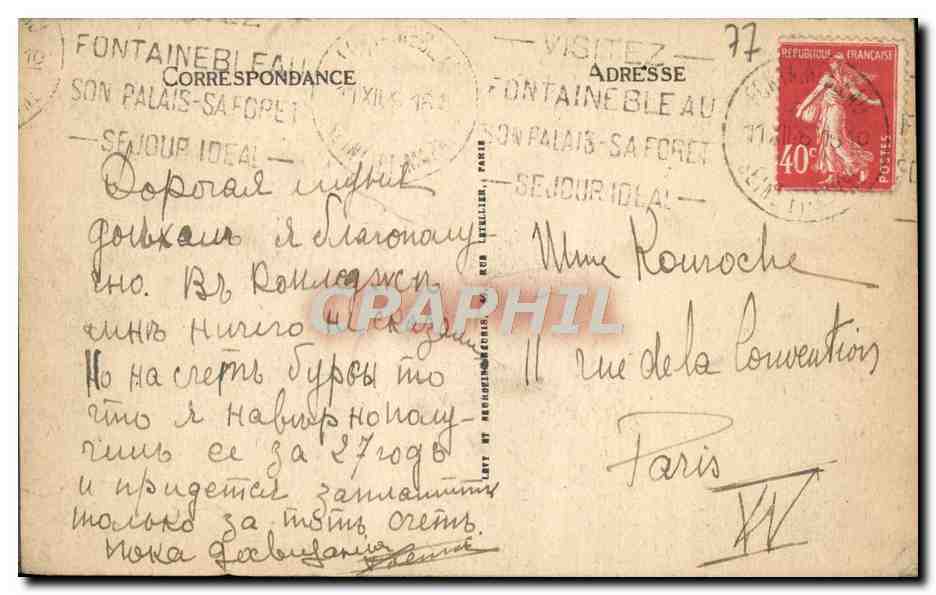 FONTAINEBLEAU
SON PALAIS-SA FORET
SEJOUR IDEAL
CORRESPONDANCE
VISITEZ
FONTAINEBLEAU
SON PALAIS-SA FORET
SEJOUR IDEAL
ADRESSE
77
REPUBLIQUE FRANÇAISE
40c
POSTES
Дорогая
доѣхалъ я благополу-
чно. Въ Колледжѣ
мнѣ ничего не сказали
Но насчетъ бурсы то
что я навѣрно полу-
чилъ ее за 27 годъ
и придется заплатить
только за тотъ счетъ.
Пока досвиданія
LEVY ET NEURDEIN REUNIS, RUE LETELLIER, PARIS
Mme Kouroche
11 rue de la Convention
Paris
XV
CRAPHIL